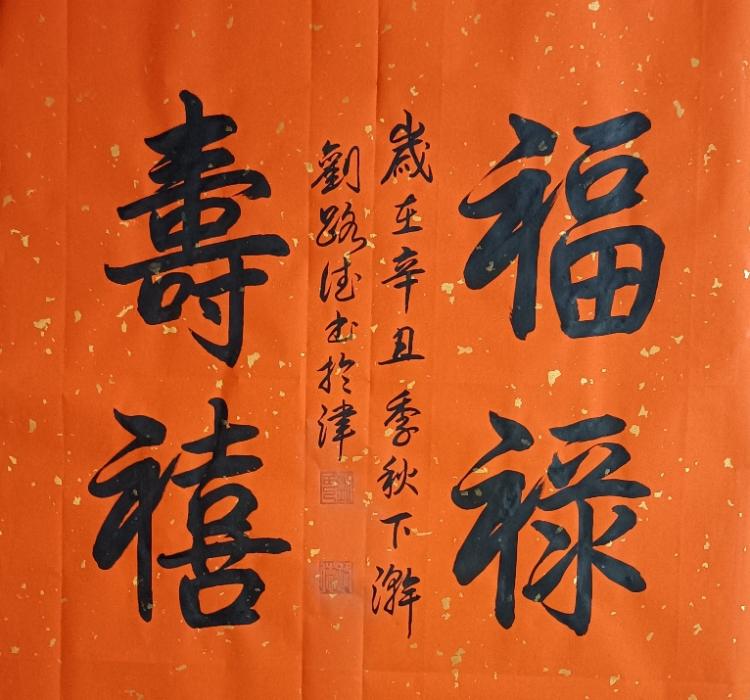 福祿
壽禧
歲在辛丑季秋下澣
劉路德书於津